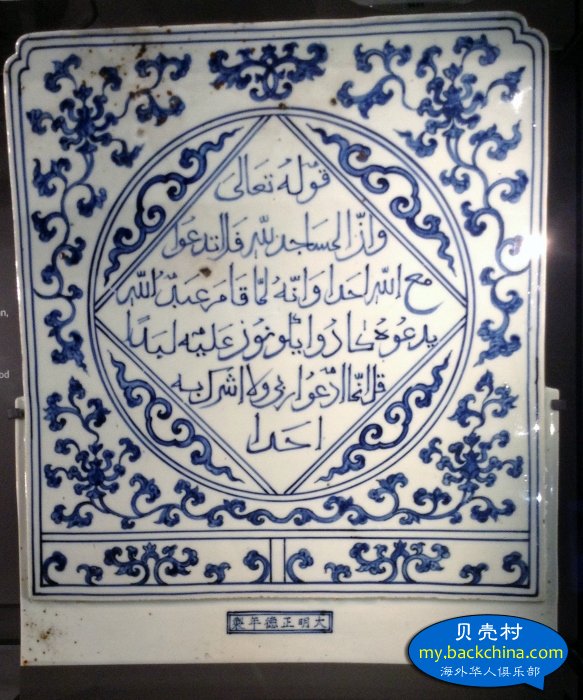 قَوْلُهُ تَعَالَى
وَاَنَّ المساجد لله فَلَا تدعوا
مع الله احدا وَاَنَّهُ لمَّا قَامَ عَبدُ الله
يدعُوهُ كادُوا يَكُونُونَ عَلَيْهِ لبَدًا
قل انَّما ادْعُوا ربي ولا اشرك به
احدا
大明正德年製
贝壳村
my.backchina.com
海外华人俱乐部